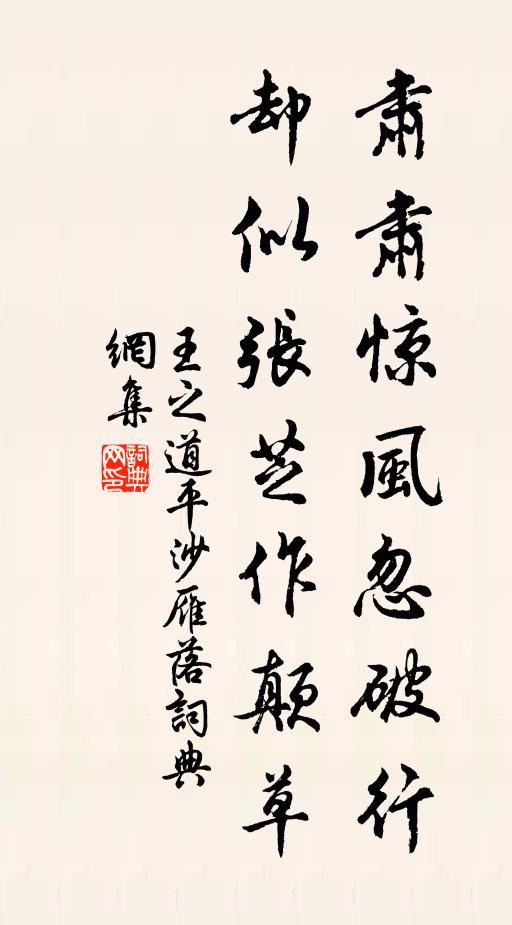 肅肅惊風忽破行
却似張芝作顛草
王之道平沙雁落詞典
網集
詞典网印